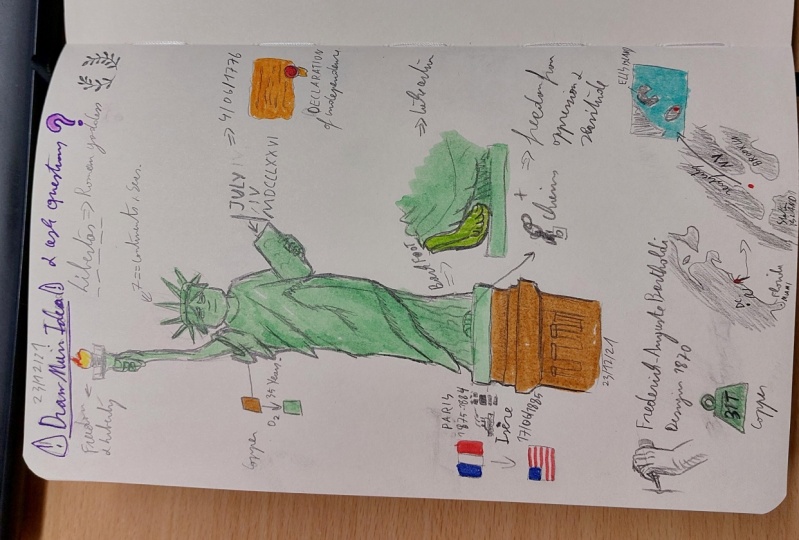 23/12/21
① Draw Main Ideas & ask questions ?
Libertas => Roman goddess
Freedom
& Liberty
7 == continents & seas.
JULY IV
IV
MDCCLXXVI
=> 4/06/1776
DECLARATION
of independence
Copper
O2 ↓ 35 Years
Bare FOOT
=>
=> Liberation
+
Chains
=> freedom from
oppression &
PARIS
1875-1884
↓ Isère
17/06/1885
23/12/21
Frederick-Auguste Bartholdi
Design 1870
31T
Copper
DC
Florida
MIAMI
NY